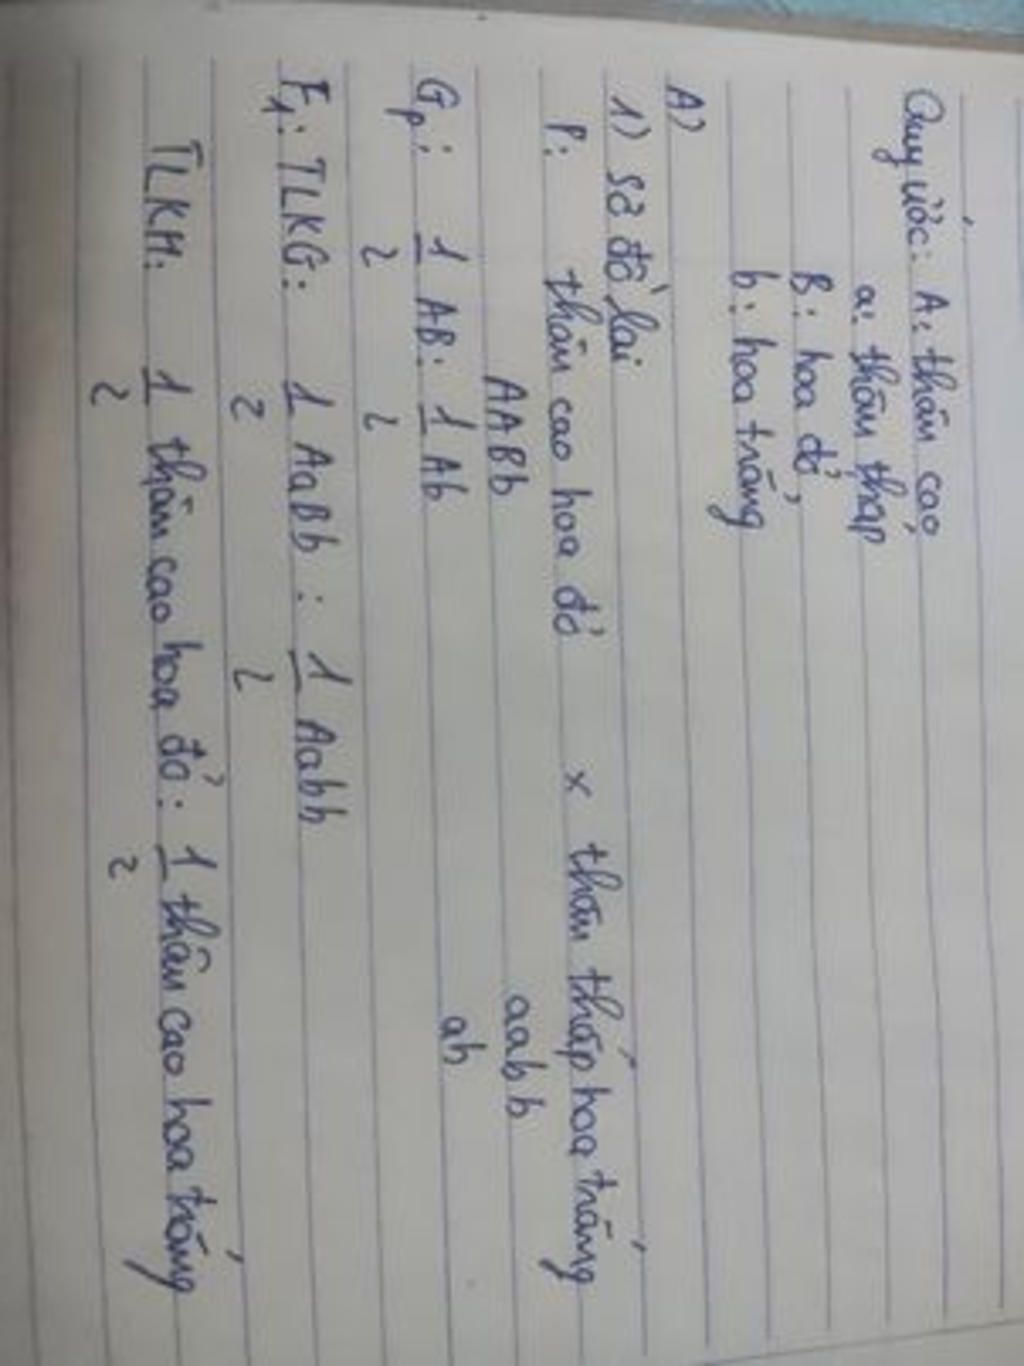 Quy ước: A: thân cao
a: thân thấp
B: hoa đỏ
b: hoa trắng
A)
1) sơ đồ lai
P: thân cao hoa đỏ x thân thấp hoa trắng
AABb aabb
Gp: 1/2 AB: 1/2 Ab ab
F1: TLKG: 1/2 AaBb : 1/2 Aabb
TLKH: 1/2 thân cao hoa đỏ: 1/2 thân cao hoa trắng